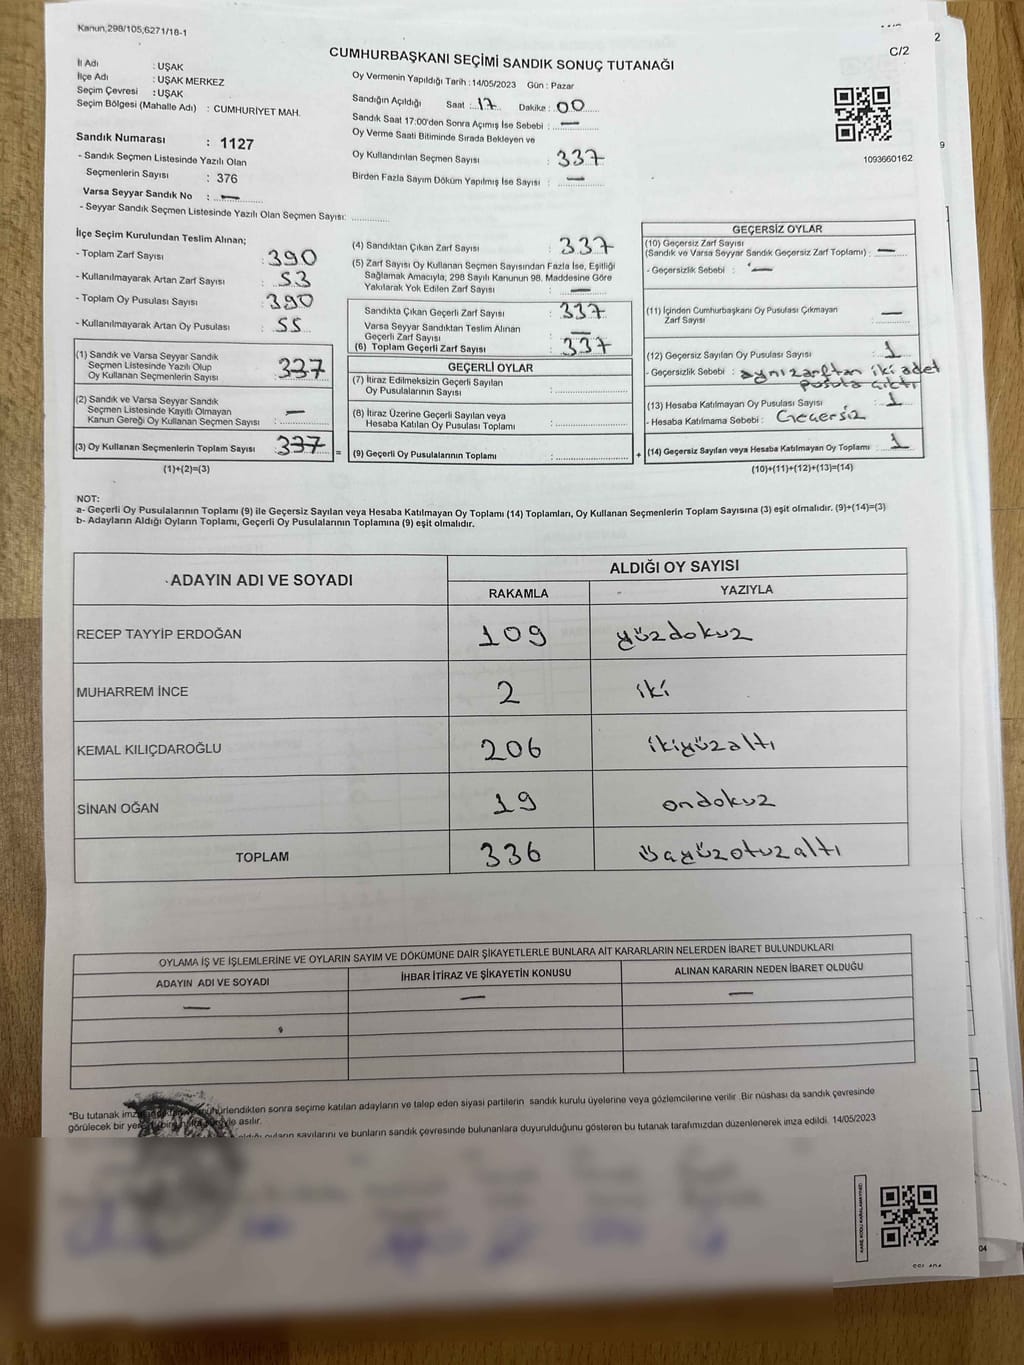 Kanun,298/105,6271/18-1
C/2
CUMHURBAŞKANI SEÇİMİ SANDIK SONUÇ TUTANAĞI
İl Adı : UŞAK
İlçe Adı : UŞAK MERKEZ
Seçim Çevresi : UŞAK
Seçim Bölgesi (Mahalle Adı) : CUMHURİYET MAH.
Sandık Numarası : 1127
- Sandık Seçmen Listesinde Yazılı Olan
Seçmenlerin Sayısı : 376
Varsa Seyyar Sandık No : —
- Seyyar Sandık Seçmen Listesinde Yazılı Olan Seçmen Sayısı: ............
Oy Vermenin Yapıldığı Tarih : 14/05/2023 Gün : Pazar
Sandığın Açıldığı Saat : 17 Dakika : 00
Sandık Saat 17:00'den Sonra Açımış İse Sebebi : —
Oy Verme Saati Bitiminde Sırada Bekleyen ve
Oy Kullandırılan Seçmen Sayısı : 337
Birden Fazla Sayım Döküm Yapılmış İse Sayısı : —
1093660162
İlçe Seçim Kurulundan Teslim Alınan;
- Toplam Zarf Sayısı : 390
- Kullanılmayarak Artan Zarf Sayısı : 53
- Toplam Oy Pusulası Sayısı : 390
- Kullanılmayarak Artan Oy Pusulası : 55
(1) Sandık ve Varsa Seyyar Sandık
Seçmen Listesinde Yazılı Olup
Oy Kullanan Seçmenlerin Sayısı : 337
(2) Sandık ve Varsa Seyyar Sandık
Seçmen Listesinde Kayıtlı Olmayan
Kanun Gereği Oy Kullanan Seçmen Sayısı : —
(3) Oy Kullanan Seçmenlerin Toplam Sayısı : 337
(1)+(2)=(3)
(4) Sandıktan Çıkan Zarf Sayısı : 337
(5) Zarf Sayısı Oy Kullanan Seçmen Sayısından Fazla İse, Eşitliği
Sağlamak Amacıyla; 298 Sayılı Kanunun 98. Maddesine Göre
Yakılarak Yok Edilen Zarf Sayısı : —
Sandıkta Çıkan Geçerli Zarf Sayısı : 337
Varsa Seyyar Sandıktan Teslim Alınan
Geçerli Zarf Sayısı : —
(6) Toplam Geçerli Zarf Sayısı : 337
GEÇERLİ OYLAR
(7) İtiraz Edilmeksizin Geçerli Sayılan
Oy Pusulalarının Sayısı : ............
(8) İtiraz Üzerine Geçerli Sayılan veya
Hesaba Katılan Oy Pusulası Toplamı : ............
= (9) Geçerli Oy Pusulalarının Toplamı : ............ +
GEÇERSİZ OYLAR
(10) Geçersiz Zarf Sayısı
(Sandık ve Varsa Seyyar Sandık Geçersiz Zarf Toplamı) : —
- Geçersizlik Sebebi : —
(11) İçinden Cumhurbaşkanı Oy Pusulası Çıkmayan
Zarf Sayısı : —
(12) Geçersiz Sayılan Oy Pusulası Sayısı : 1
- Geçersizlik Sebebi : aynı zarftan iki adet
pusula çıktı
(13) Hesaba Katılmayan Oy Pusulası Sayısı : 1
- Hesaba Katılmama Sebebi : Geçersiz
(14) Geçersiz Sayılan veya Hesaba Katılmayan Oy Toplamı : 1
(10)+(11)+(12)+(13)=(14)
NOT:
a- Geçerli Oy Pusulalarının Toplamı (9) ile Geçersiz Sayılan veya Hesaba Katılmayan Oy Toplamı (14) Toplamları, Oy Kullanan Seçmenlerin Toplam Sayısına (3) eşit olmalıdır. (9)+(14)=(3)
b- Adayların Aldığı Oyların Toplamı, Geçerli Oy Pusulalarının Toplamına (9) eşit olmalıdır.
ADAYIN ADI VE SOYADI
ALDIĞI OY SAYISI
RAKAMLA YAZIYLA
RECEP TAYYİP ERDOĞAN 109 yüzdokuz
MUHARREM İNCE 2 iki
KEMAL KILIÇDAROĞLU 206 ikiyüzaltı
SİNAN OĞAN 19 ondokuz
TOPLAM 336 üçyüzotuzaltı
OYLAMA İŞ VE İŞLEMLERİNE VE OYLARIN SAYIM VE DÖKÜMÜNE DAİR ŞİKAYETLERLE BUNLARA AİT KARARLARIN NELERDEN İBARET BULUNDUKLARI
ADAYIN ADI VE SOYADI İHBAR İTİRAZ VE ŞİKAYETİN KONUSU ALINAN KARARIN NEDEN İBARET OLDUĞU
— — —
*Bu tutanak mühürlendikten sonra seçime katılan adayların ve talep eden siyasi partilerin sandık kurulu üyelerine veya gözlemcilerine verilir. Bir nüshası da sandık çevresinde
görülecek bir yere asılır.
oyların sayılarını ve bunların sandık çevresinde bulunanlara duyurulduğunu gösteren bu tutanak tarafımızdan düzenlenerek imza edildi. 14/05/2023
2
9
04